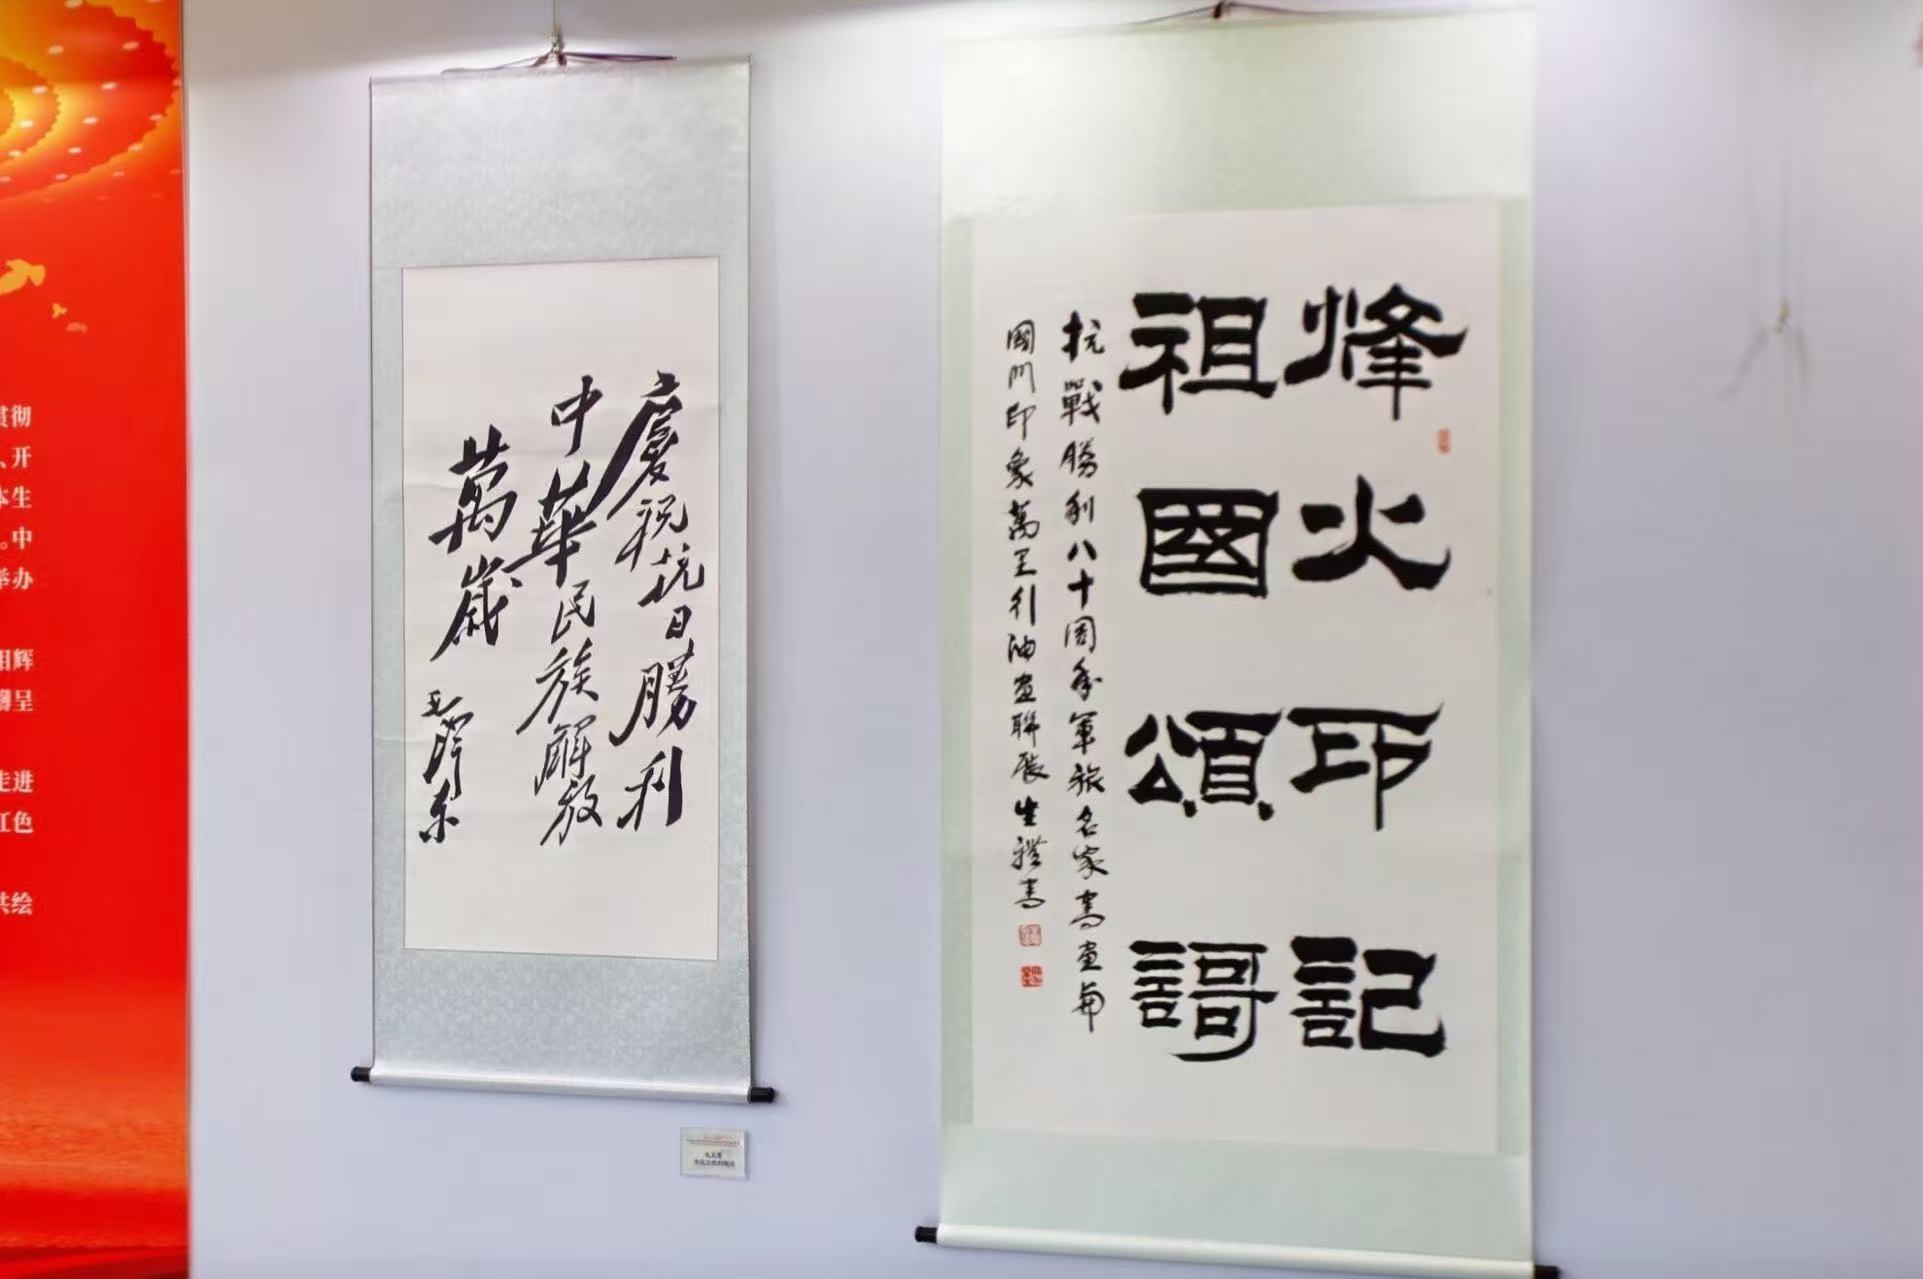 贯彻
、开
本生
。中
举办
相辉
呈
走进
红色
共绘
慶祝抗日勝利
中華民族解放
萬歲
毛澤東
烽火印記
祖國頌謌
抗戰勝利八十周年軍旅名家書画与
國門印象萬里行油画聯展生禮書